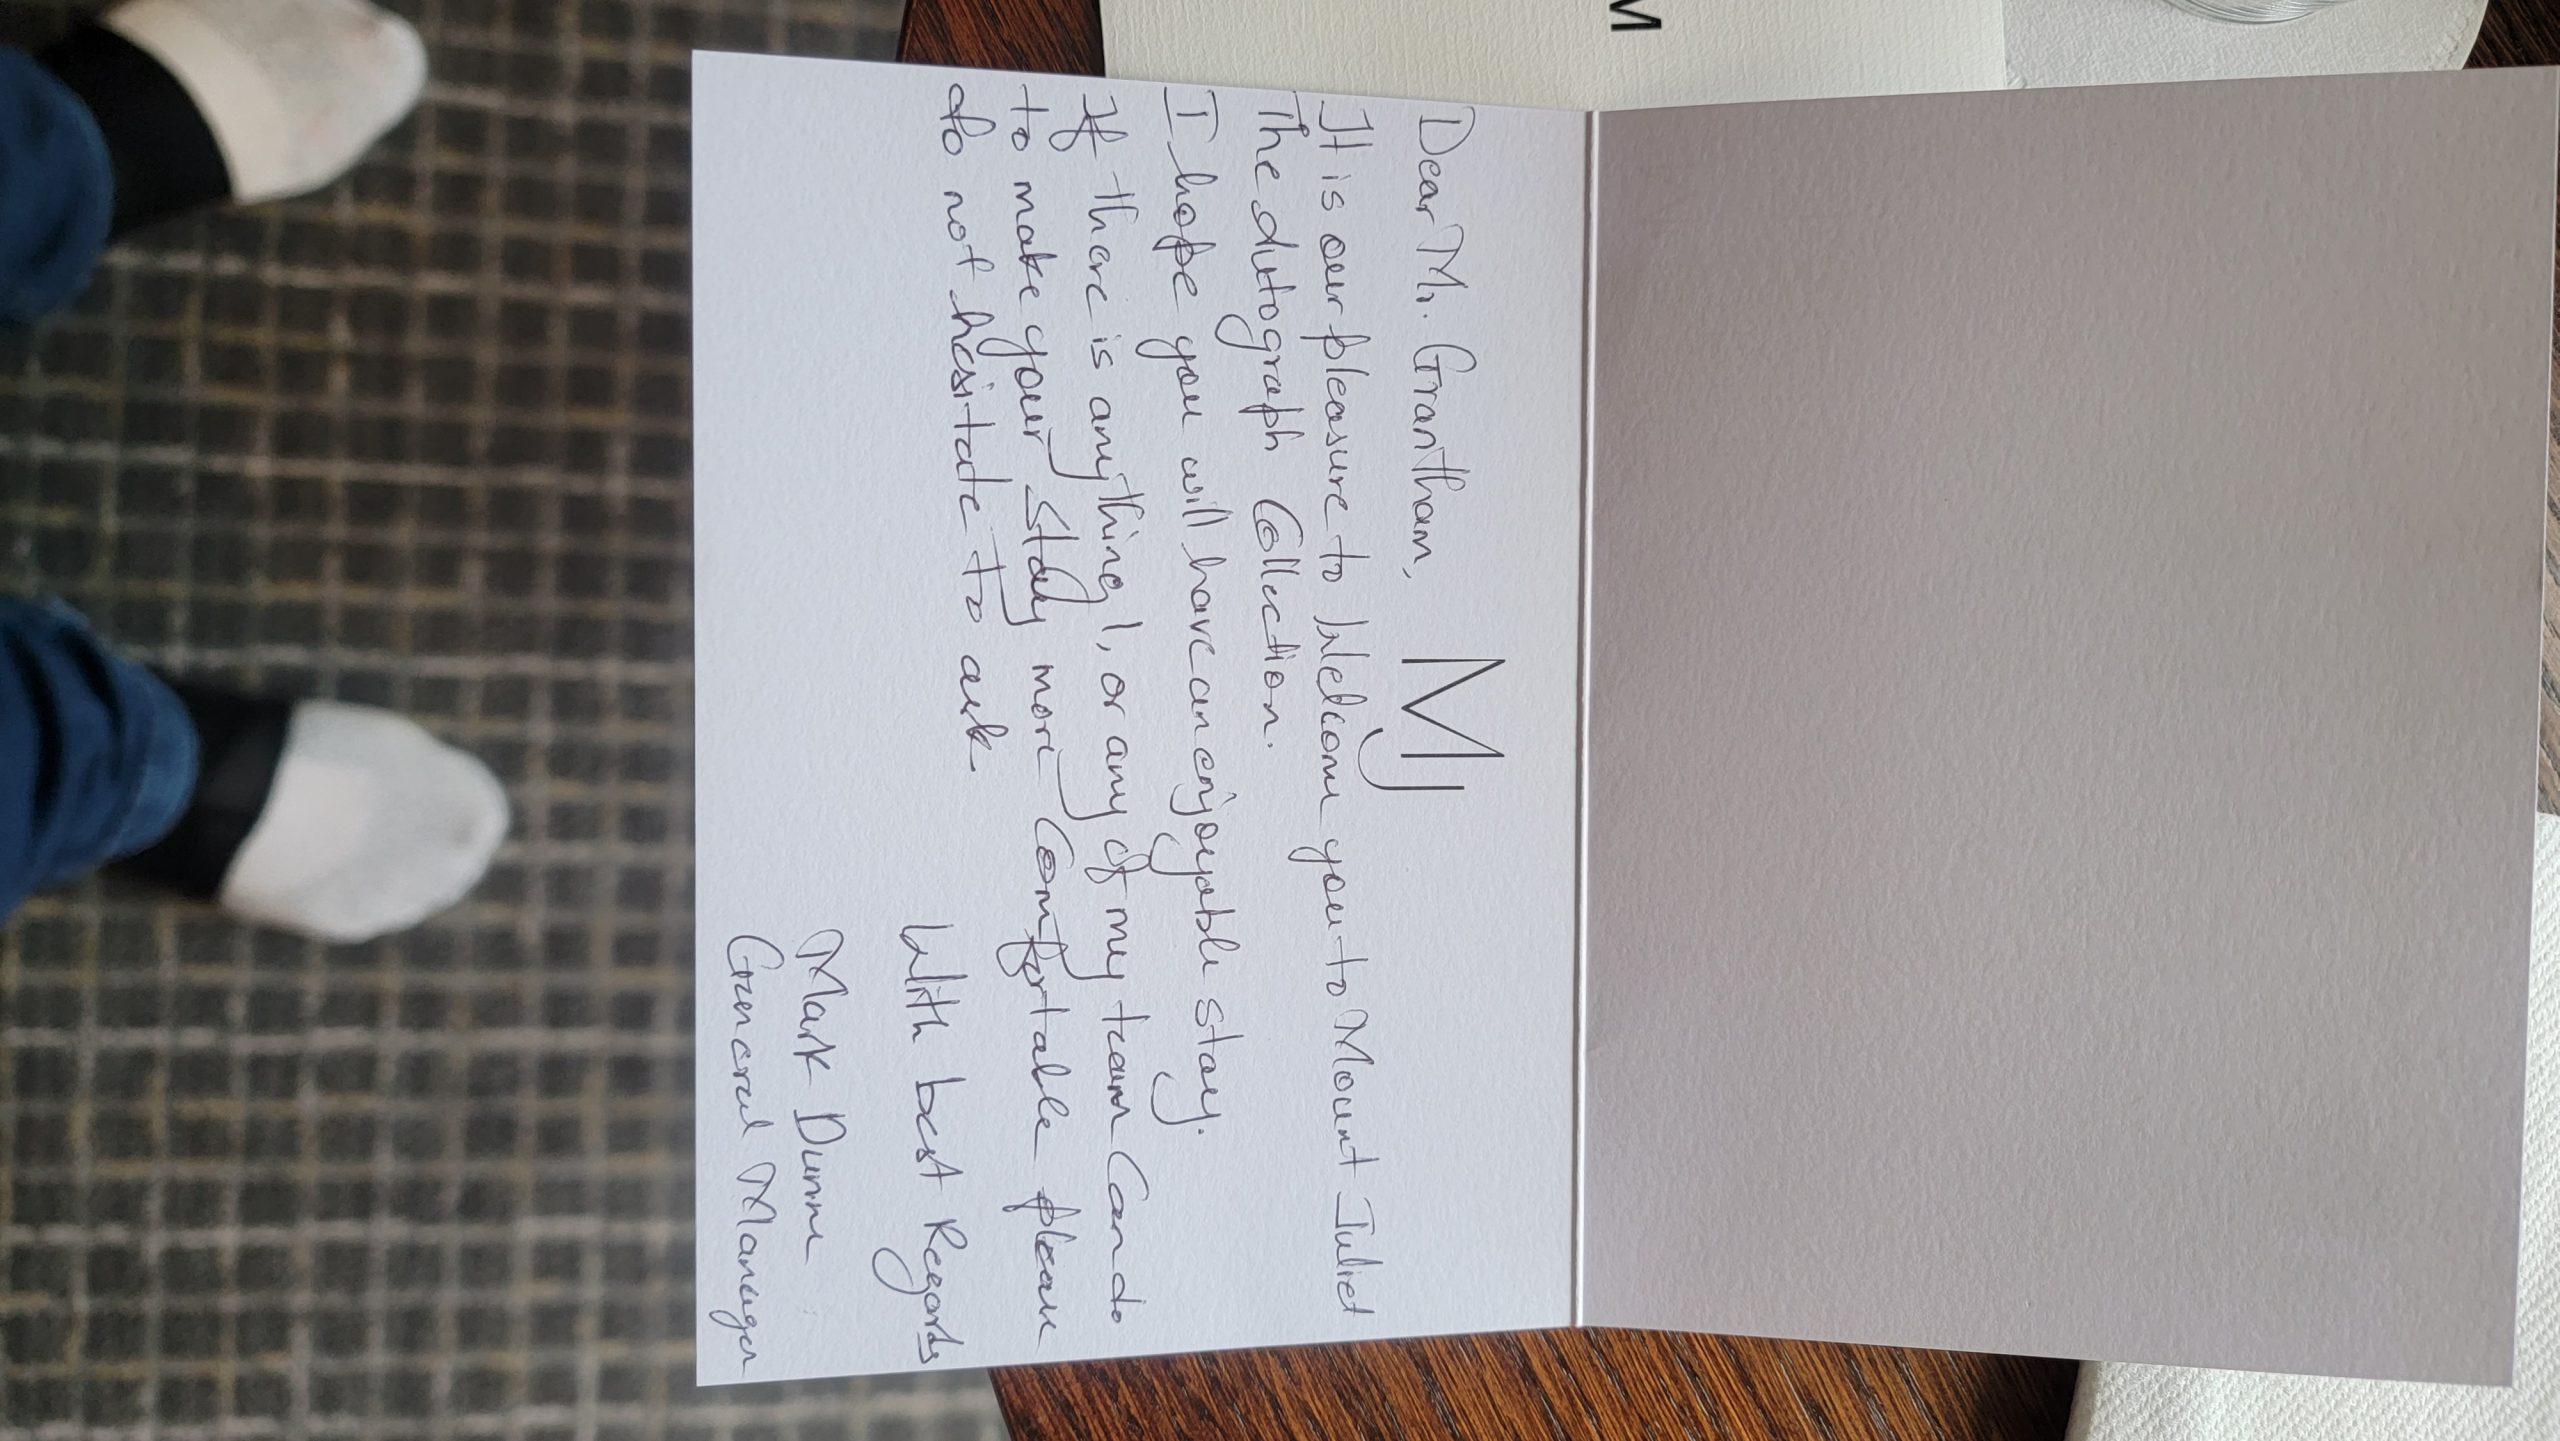 M
MJ
Dear Mr. Grantham,
It is our pleasure to Welcome you to Mount Juliet
The Autograph Collection.
I hope you will have an enjoyable stay.
If there is anything I, or any of my team Can do
to make your Stay more Comfortable please
do not hesitate to ask.
With best Regards
Mark Dunne
General Manager